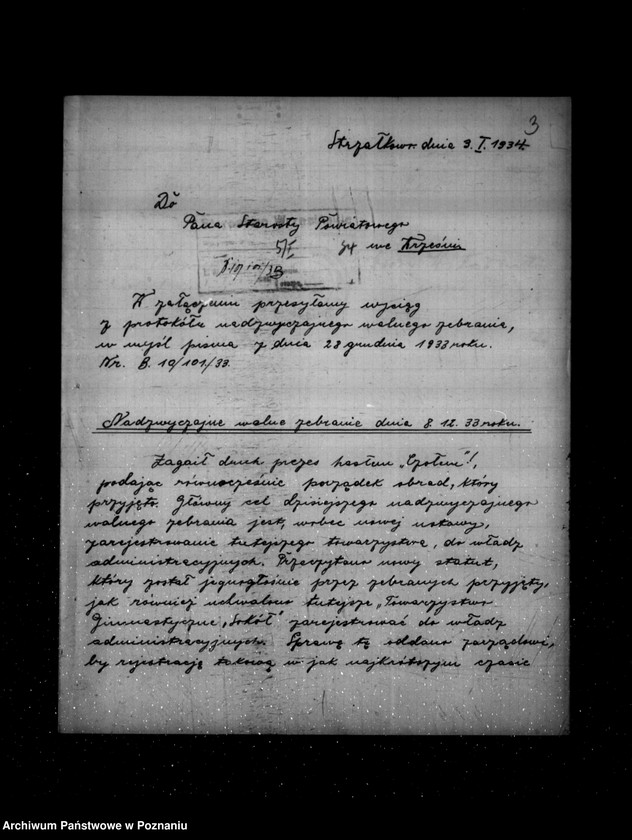 3
Strzałkowo dnia 3. I. 1934.
Do
Pana Starosty Powiatowego
5/I 34 we Wrześni
W załączeniu przesyłamy wyciąg
z protokółu nadzwyczajnego walnego zebrania,
w myśl pisma z dnia 28 grudnia 1933 roku.
Nr. B. 10/101/33.
Nadzwyczajne walne zebranie dnia 8. 12. 33 roku.
Zagaił druh prezes hasłem „Czołem"!,
podając równocześnie porządek obrad, który
przyjęto. Główny cel dzisiejszego nadzwyczajnego
walnego zebrania jest, wobec nowej ustawy,
zarejestrowanie tutejszego towarzystwa, do władz
administracyjnych. Przeczytano nowy statut,
który został jednogłośnie przez zebranych przyjęty,
jak również uchwalono tutejsze „Towarzystwo
Gimnastyczne „Sokół" zarejestrować do władz
administracyjnych. Sprawę tę oddano zarządowi,
by rejestrację takową w jak najkrótszym czasie
Archiwum Państwowe w Poznaniu